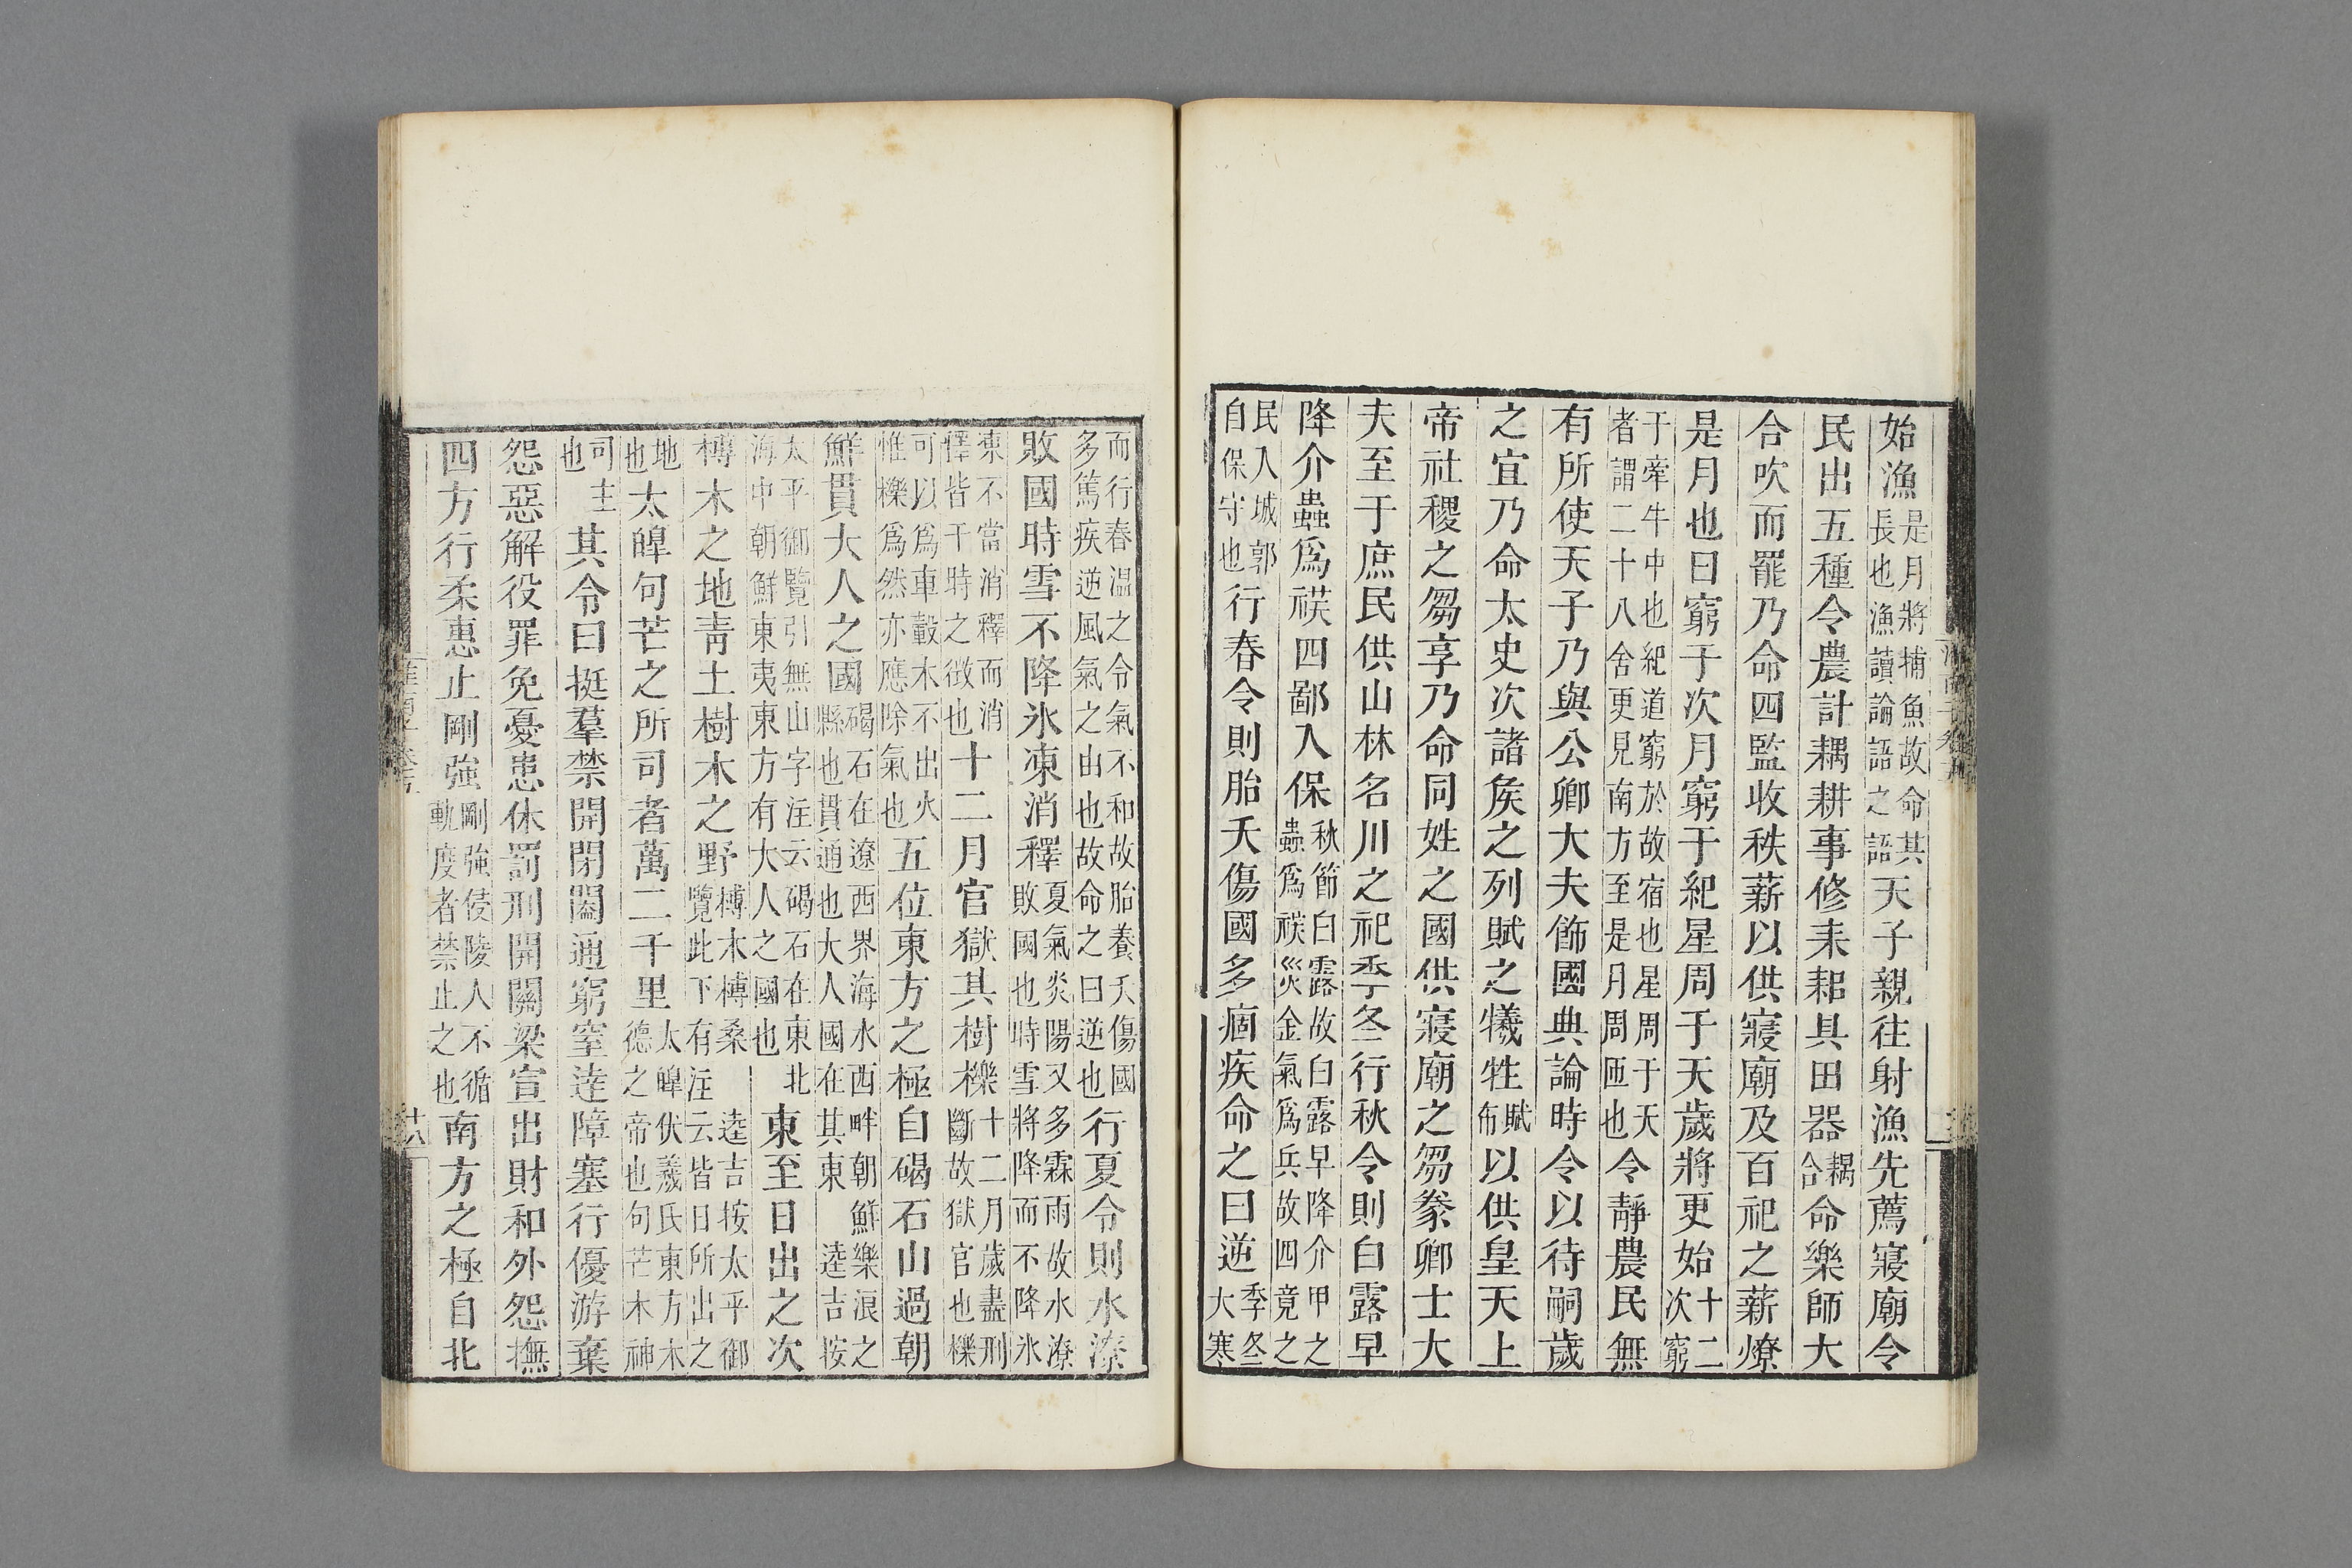 始漁是月將捕魚故命其長也漁讀論語之語天子親往射漁先薦寢廟令
民出五種令農計耦耕事修耒耜具田器耦合命樂師大
合吹而罷乃命四監收秩薪以供寢廟及百祀之薪燎
是月也日窮于次月窮于紀星周于天歲將更始十二次窮
于牽牛中也紀道窮於故宿也星周于天者謂二十八舍更見南方至是月周匝也令靜農民無
有所使天子乃與公卿大夫飾國典論時令以待嗣歲
之宜乃命太史次諸矦之列賦之犧牲賦布以供皇天上
帝社稷之芻享乃命同姓之國供寢廟之芻豢卿士大
夫至于庶民供山林名川之祀季冬行秋令則白露早
降介蟲爲祅四鄙入保秋節白露故白露早降介甲之蟲爲祅災金氣爲兵故四竟之
民入城郭自保守也行春令則胎夭傷國多痼疾命之曰逆季冬大寒
而行春温之令氣不和故胎養夭傷國多篤疾逆風氣之由也故命之曰逆也行夏令則水潦
敗國時雪不降氷凍消釋夏氣炎陽又多霖雨故水潦敗國也時雪將降而不降氷
凍不當消釋而消釋皆干時之徵也十二月官獄其樹櫟十二月歲盡刑斷故獄官也櫟
可以爲車轂木不出火惟櫟爲然亦應除氣也五位東方之極自碣石山過朝
鮮貫大人之國碣石在遼西界海水西畔朝鮮樂浪之縣也貫通也大人國在其東 逵吉按
太平御覽引無山字注云碣石在東北海中朝鮮東夷東方有大人之國也東至日出之次
榑木之地靑土樹木之野榑木榑桑 逵吉按太平御覽此下有注云皆日所出之
地也太皥句芒之所司者萬二千里太皥伏羲氏東方木德之帝也句芒木神
司主也其令曰挺羣禁開閉闔通窮窒達障塞行優游棄
怨惡解役罪免憂患休罰刑開關梁宣出財和外怨撫
四方行柔惠止剛強剛強侵陵人不循軌度者禁止之也南方之極自北
十八